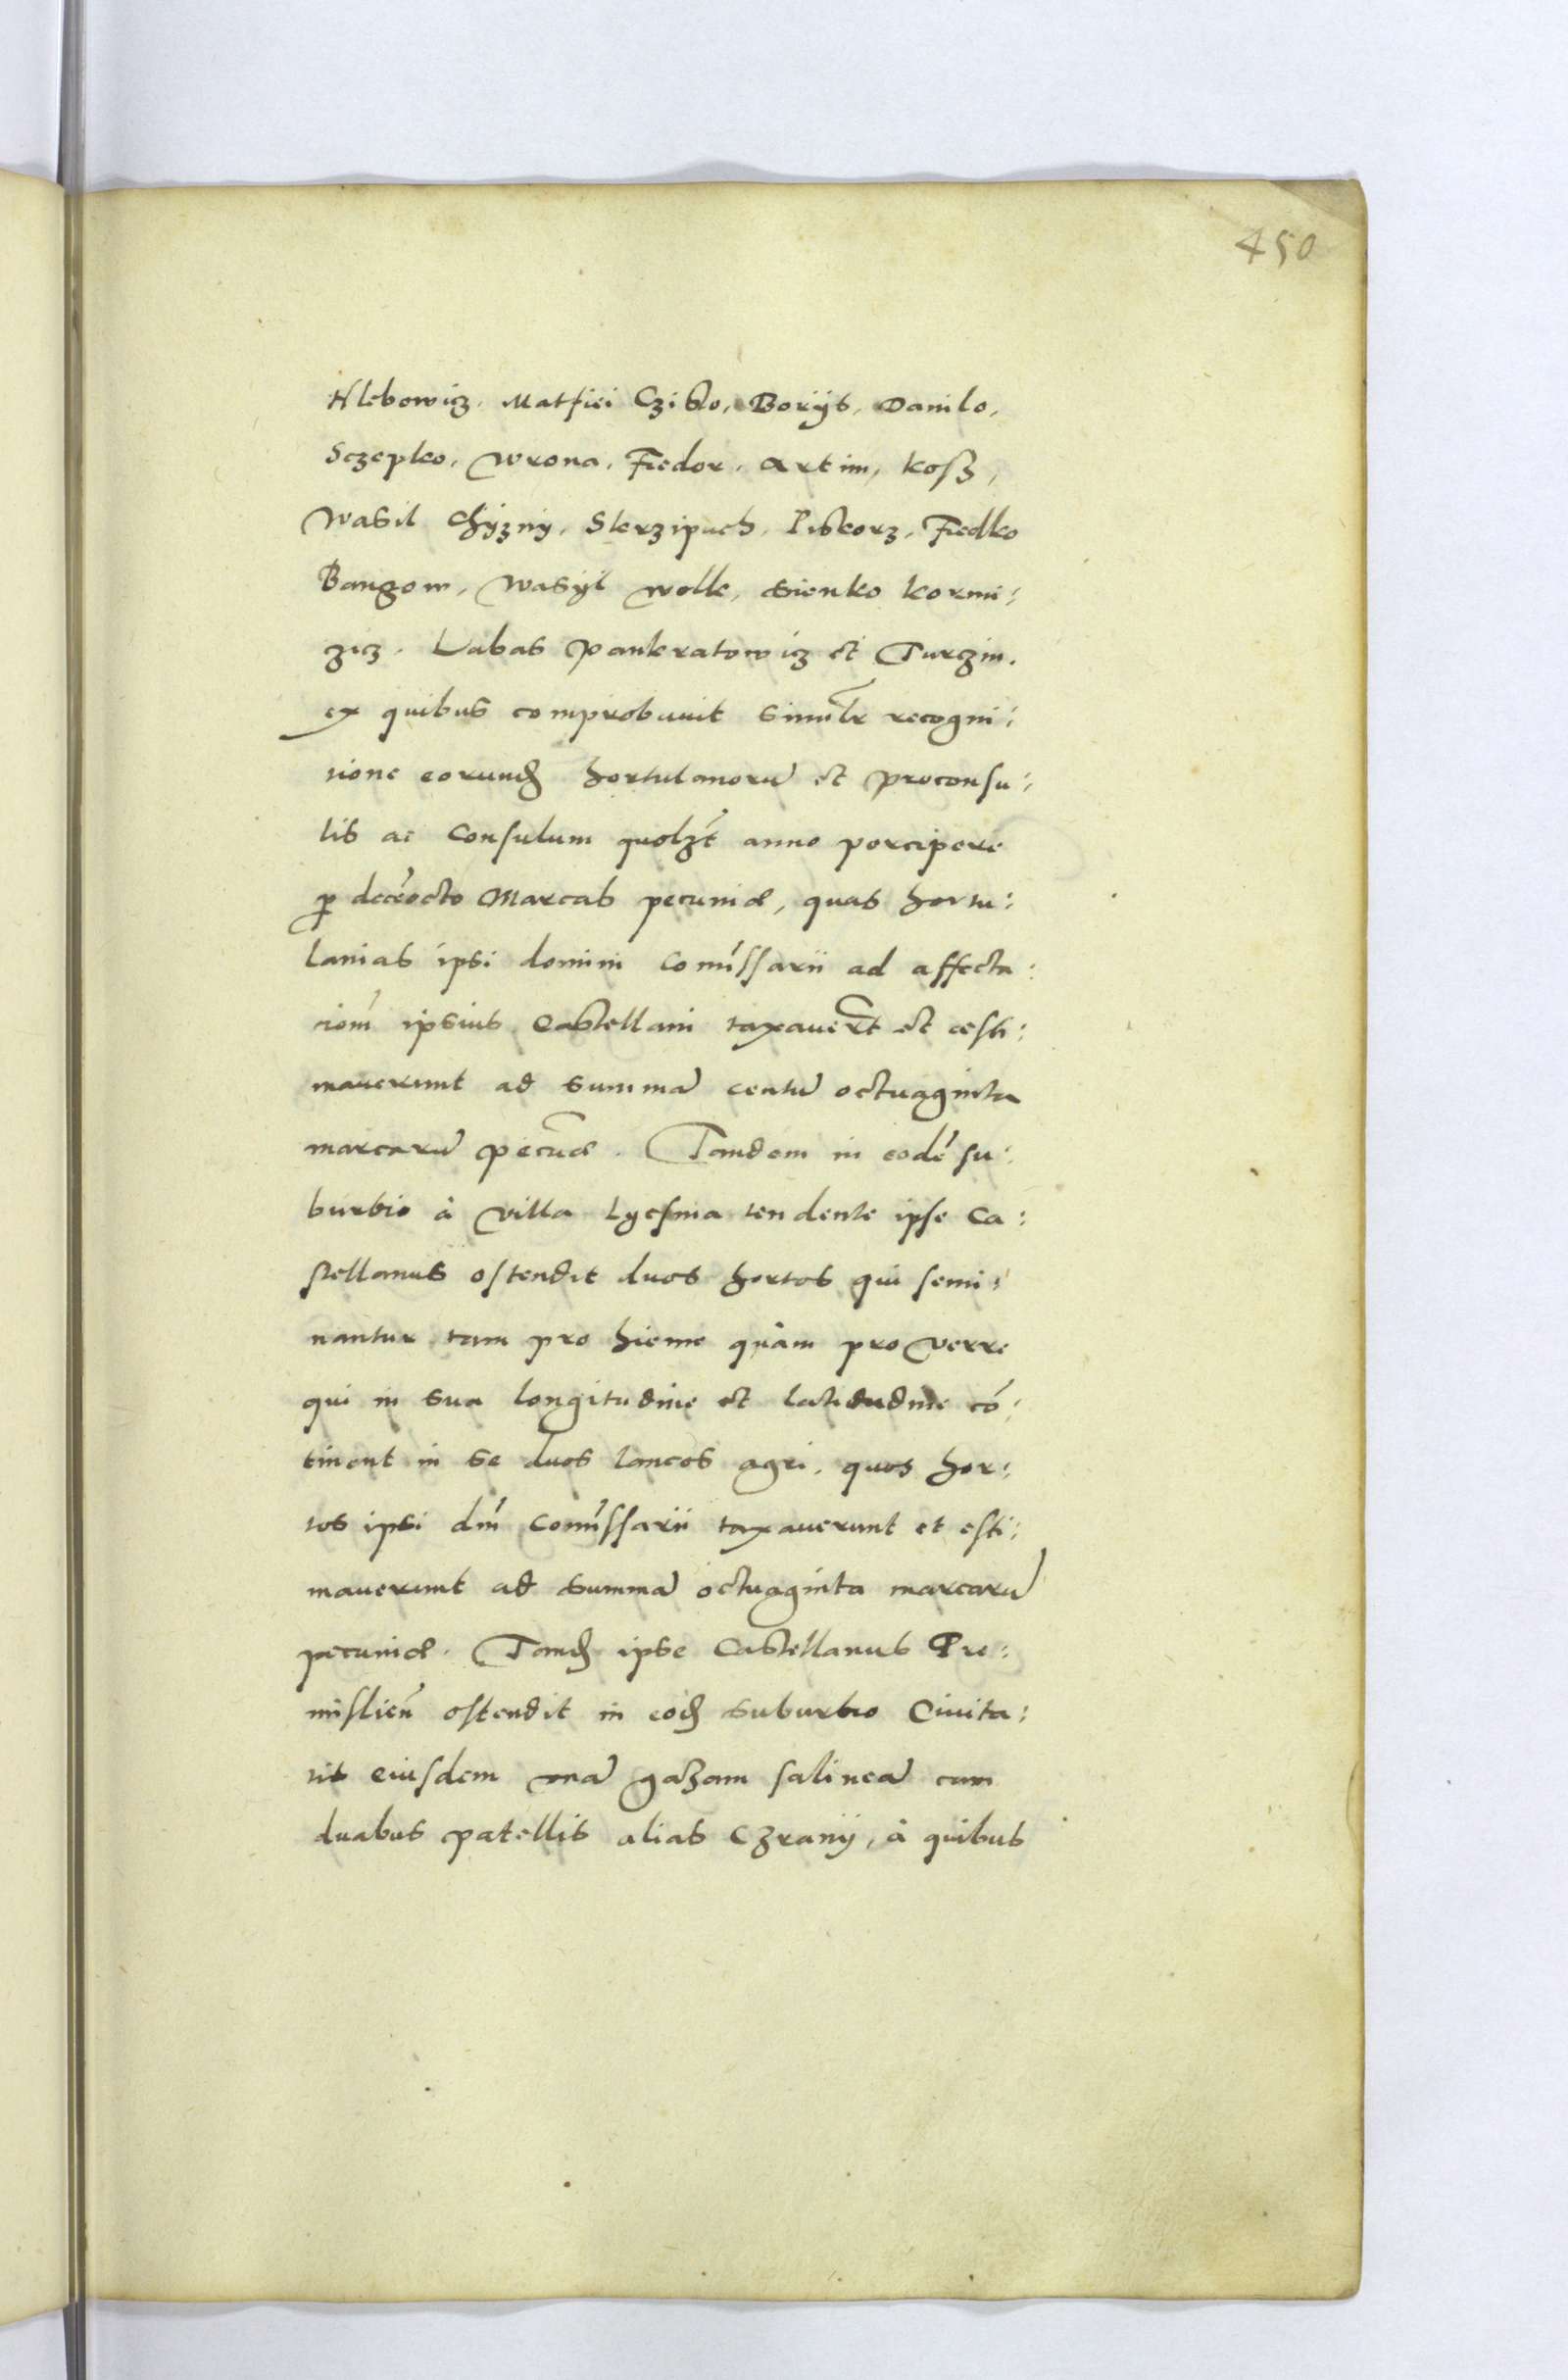 450
Hlebowicz. Matfiei Czisto, Borÿs, Danilo,
Sczepko, Wrona, Fiedor, Artim, Kosz,
Wasil Chÿznÿ, Skrzipuch, Piskorz, Fiedko
Bangow, Wasÿl Wolk, Sienko Kormi:
zicz. Labas Pankratowicz et Turczin.
ex quibus comprobauit simlr recogni:
tione eorund hortulanorū et proconsu:
lis ac Consulum quolzt anno percipere
p decēocto Marcas pecuniæ, quas hortu:
lanias ipsi domini Comissarii ad affecta:
tiom ipsius Castellani taxauert et æsti:
mauerunt ad summā centū octuaginta
marcarū pecuæ. Tandem in eodē su:
burbio à villa Lyesnia tendente ipse Ca:
stellanus ostendit duos hortos qui semi:
nantur tam pro hieme quàm pro verre
qui in sua longitudine et latidudine cō:
tinent in se duos laneos agri, quos hor:
tos ipsi dni Comissarii taxauerunt et esti:
mauerunt ad summā octuaginta marcarū
pecuniæ. Tand ipse Castellanus Pre:
mislien ostendit in eod suburbio Ciuita:
tis eiusdem vnā gazam salineā cum
duabus patellis alias Czranÿ, à quibus